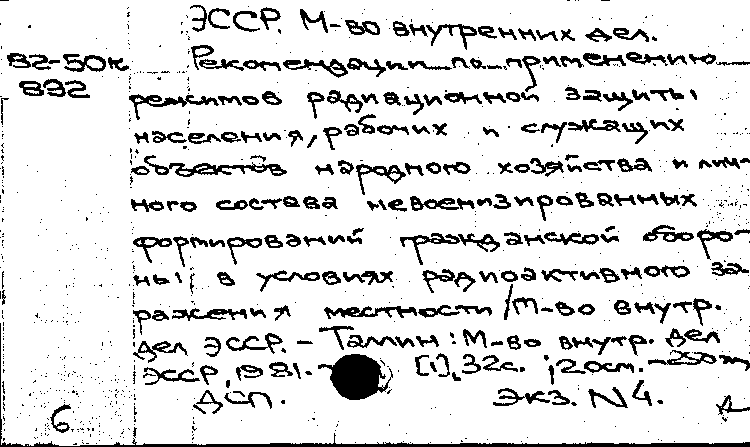 ЭССР. М-во внутренних дел.
82-50к Рекомендации по применению
892
режимов радиационной защиты
населения, рабочих и служащих
объектов народного хозяйства и лич-
ного состава невоенизированных
формирований гражданской оборо-
ны в условиях радиоактивного за-
ражения местности / М-во внутр.
дел ЭССР. - Таллин: М-во внутр. дел
ЭССР, 1981. - [1], 32с. ; 20см. - 250
ДСП. Экз. N4.
6